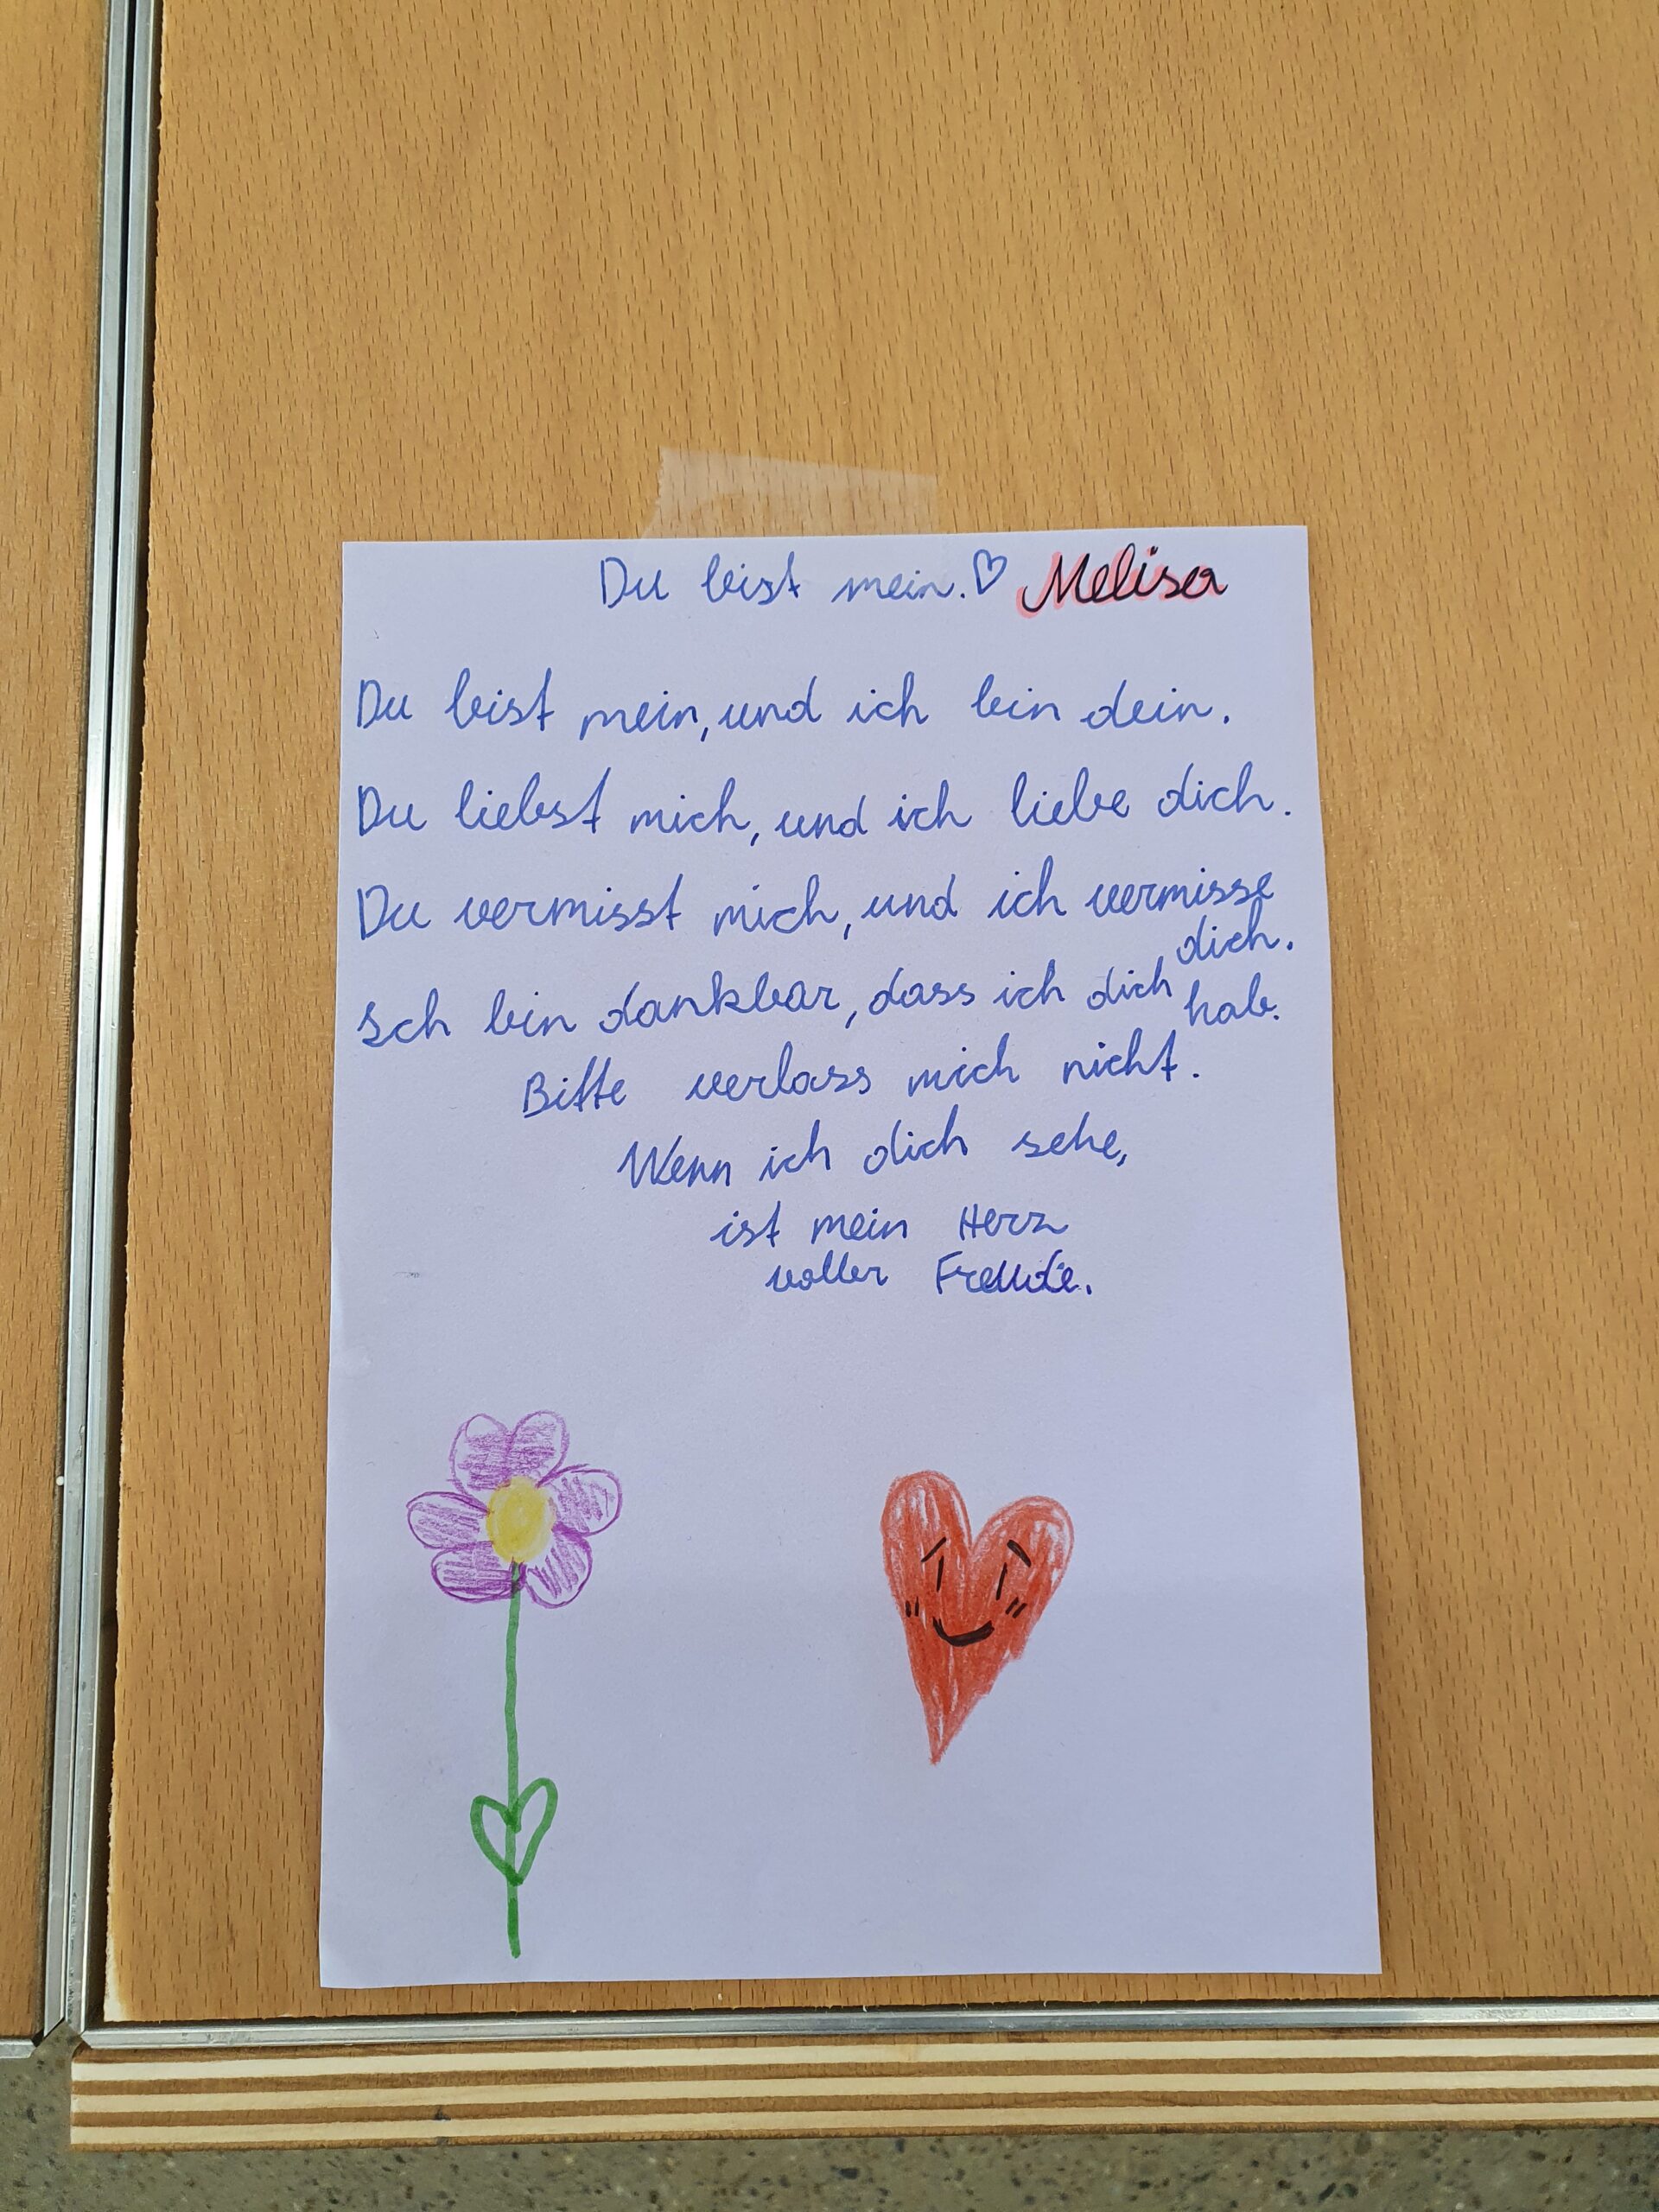 Du bist mein.♡ Melisa
Du bist mein, und ich bin dein.
Du liebst mich, und ich liebe dich.
Du vermisst mich, und ich vermisse
dich.
Ich bin dankbar, dass ich dich
hab.
Bitte verlass mich nicht.
Wenn ich dich sehe,
ist mein Herz
voller Freude.